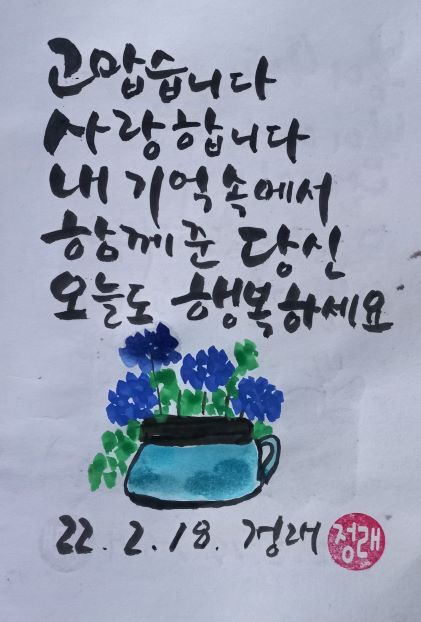 고맙습니다
사랑합니다
내 기억속에서
함께준 당신
오늘도 행복하세요
22. 2. 18. 정래
정래